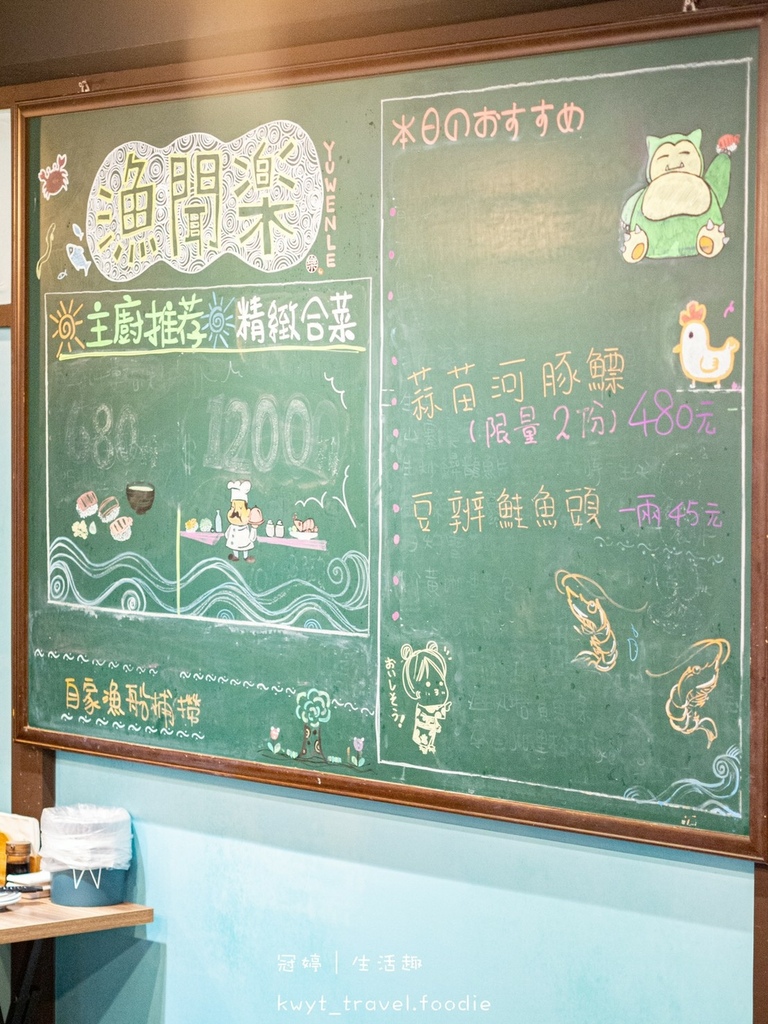 漁聞楽
YUWENLE
主廚推荐 精緻合菜
680
1200
自家漁船捕撈
本日のおすすめ
蒜苗河豚鰾
(限量2份) 480元
豆辨鮭魚頭 一兩45元
おいしそう!
冠婷|生活趣
kwyt_travel.foodie